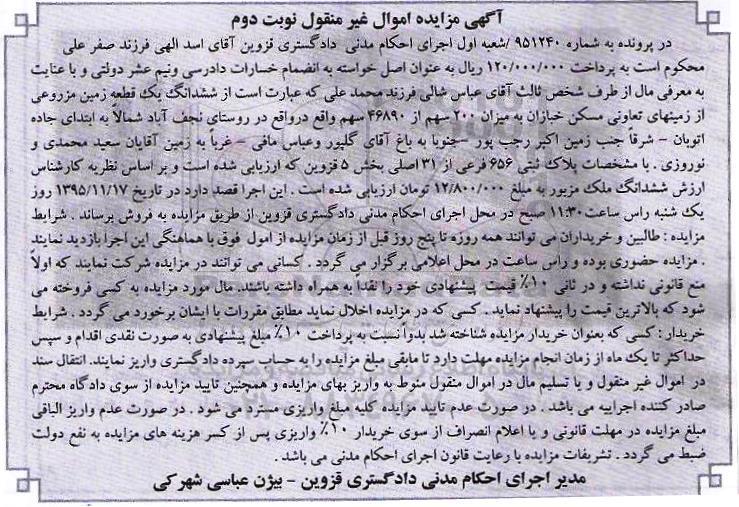 آگهی مزایده اموال غیر منقول نوبت دوم
در پرونده به شماره ۹۵۱۲۴۰ /شعبه اول اجرای احکام مدنی دادگستری قزوین آقای اسد الهی فرزند صفر علی
محکوم است به پرداخت ۱۲۰/۰۰۰/۰۰۰ ریال به عنوان اصل خواسته به انضمام خسارات دادرسی ونیم عشر دولتی و با عنایت
به معرفی مال از طرف شخص ثالث آقای عباس شالی فرزند محمد علی که عبارت است از ششدانگ یک قطعه زمین مزروعی
از زمینهای تعاونی مسکن خبازان به میزان ۲۰۰ سهم از ۴۶۸۹۰ سهم واقع درواقع در روستای نجف آباد شمالاً به ابتدای جاده
اتوبان - شرقاً جنب زمین اکبر رجب پور -جنوبا به باغ آقای گلپور وعباس مافی - غرباً به زمین آقایان سعید محمدی و
نوروزی . با مشخصات پلاک ثبتی ۶۵۶ فرعی از ۳۱ اصلی بخش ۵ قزوین که ارزیابی شده است و بر اساس نظریه کارشناس
ارزش ششدانگ ملک مزبور به مبلغ ۱۲/۸۰۰/۰۰۰ تومان ارزیابی شده است . این اجرا قصد دارد در تاریخ ۱۳۹۵/۱۱/۱۷ روز
یک شنبه راس ساعت۱۱:۳۰ صبح در محل اجرای احکام مدنی دادگستری قزوین از طریق مزایده به فروش برساند . شرایط
مزایده : طالبین و خریداران می توانند همه روزه تا پنج روز قبل از زمان مزایده از امول فوق با هماهنگی این اجرا بازدید نمایند
. مزایده حضوری بوده و رأس ساعت در محل اعلامی برگزار می گردد . کسانی می توانند در مزایده شرکت نمایند که اولاً
منع قانونی نداشته و در ثانی ۱۰٪ قیمت پیشنهادی خود را نقدا به همراه داشته باشند. مال مورد مزایده به کسی فروخته می
شود که بالاترین قیمت را پیشنهاد نماید . کسی که در مزایده اخلال نماید مطابق مقررات با ایشان برخورد می گردد . شرایط
خریدار : کسی که بعنوان خریدار مزایده شناخته شد بدوا نسبت به پرداخت ۱۰٪ مبلغ پیشنهادی به صورت نقدی اقدام و سپس
حداکثر تا یک ماه از زمان انجام مزایده مهلت دارد تا مابقی مبلغ مزایده را به حساب سپرده دادگستری واریز نمایند. انتقال سند
در اموال غیر منقول و یا تسلیم مال در اموال منقول منوط به واریز بهای مزایده و همچنین تایید مزایده از سوی دادگاه محترم
صادر کننده اجراییه می باشد . در صورت عدم تایید مزایده کلیه مبلغ واریزی مسترد می شود . در صورت عدم واریز الباقی
مبلغ مزایده در مهلت قانونی و یا اعلام انصراف از سوی خریدار ۱۰٪ واریزی پس از کسر هزینه های مزایده به نفع دولت
ضبط می گردد . تشریفات مزایده با رعایت قانون اجرای احکام مدنی می باشد .
مدیر اجرای احکام مدنی دادگستری قزوین - بیژن عباسی شهرکی